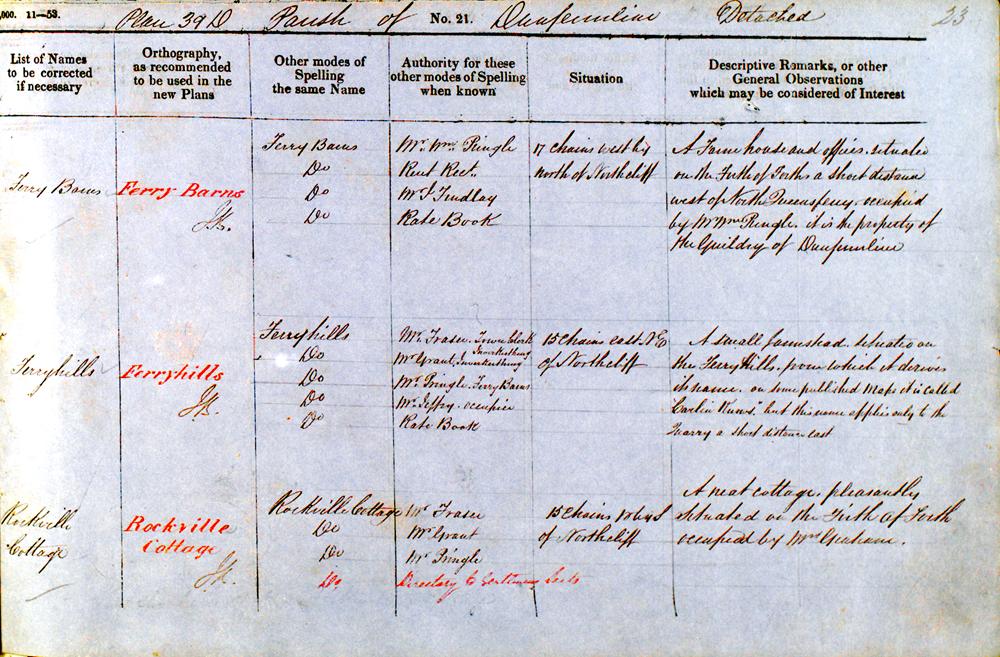 000. 11—53. Plan 39 D Parish of No. 21. Dunfermline Detached 23
List of Names
to be corrected
if necessary
Orthography,
as recommended
to be used in the
new Plans
Other modes of
Spelling
the same Name
Authority for these
other modes of Spelling
when known
Situation
Descriptive Remarks, or other
General Observations
which may be considered of Interest
Ferry Barns
Ferry Barns
Ferry Barns
Do
Do
Do
Mr. Wm. Pringle
Rent Rect.
Mr J. Findlay
Rate Book
17 chains west by
north of Northcliff
A Farm house and offices. situated
on the Firth of Forth a short distance
west of North Queensferry occupied
by Mr Wm Pringle. it is the property of
the Guildry of Dunfermline
Ferryhills
Ferryhills
Ferryhills
Do
Do
Do
Do
Mr. Fraser. Town Clerk Inverkeithing
Mr Grant, Inverkeithing
Mr Pringle. Ferry Barns
Mr. Jeffry. occupier
Rate Book
15 chains east. N.E
of Northcliff
A small farmstead. situated on
the Ferry Hills. from which it derives
its name. on some published Maps it is called
"Carlin Knows" but this name applies only to the
Quarry a short distance east
Rockville
Cottage
Rockville
Cottage
Rockville Cottage
Do
Do
Do.
Mr Fraser
Mr Grant
Mr Pringle
Directory to Gentlemens Seats
15 chains
of Northcliff
A neat cottage. pleasantly
situated on the Firth of Forth
occupied by Mrs Graham.